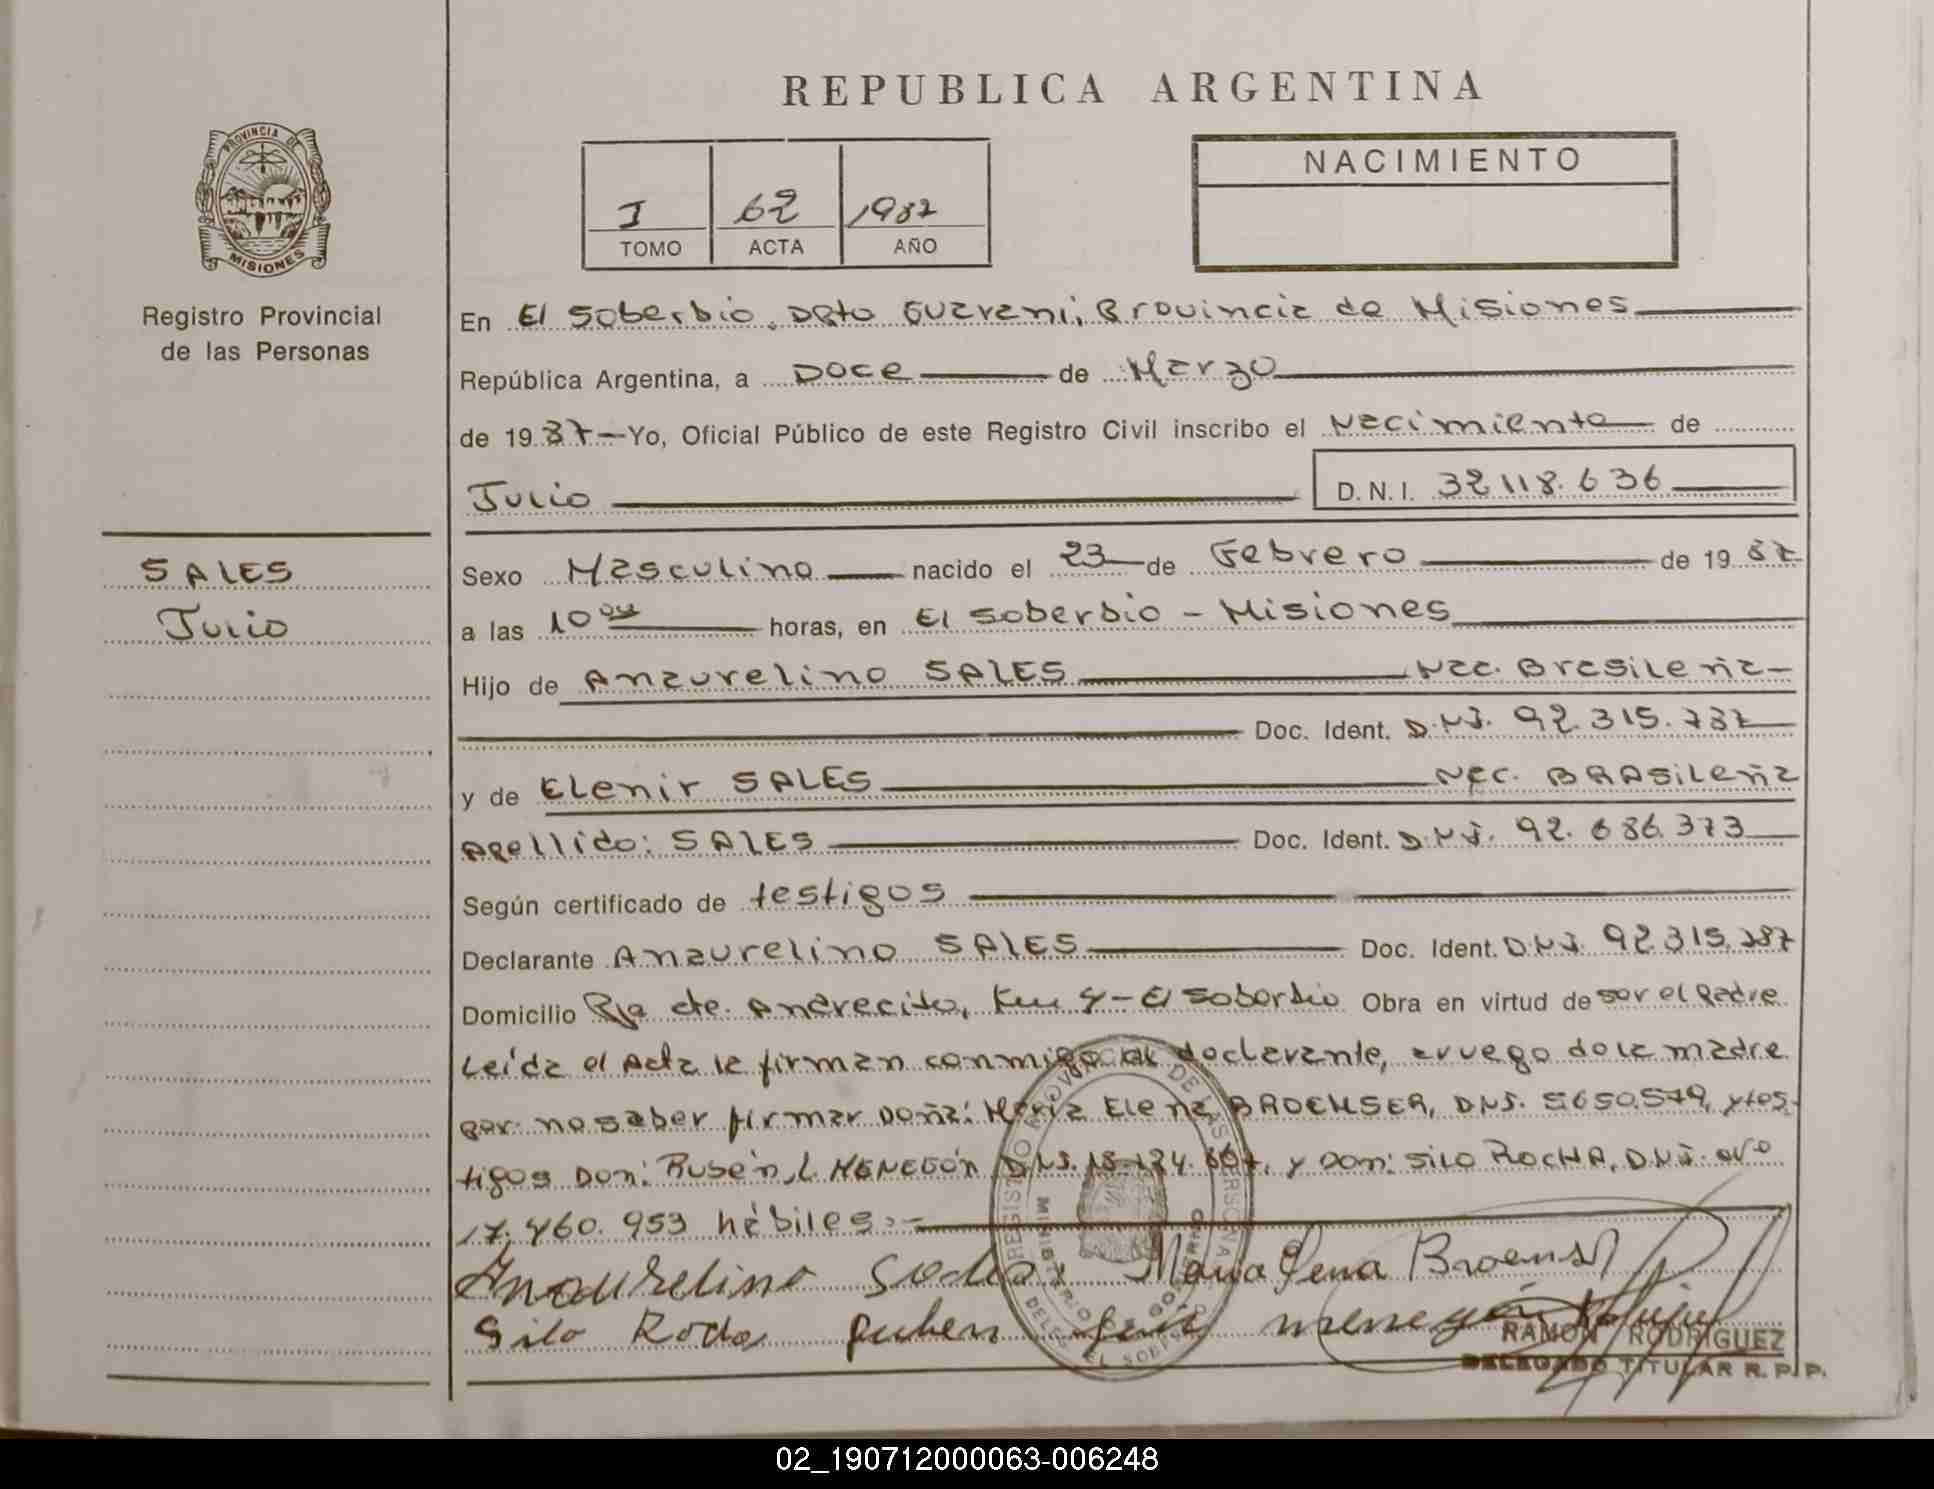 REPUBLICA ARGENTINA
PROVINCIA DE MISIONES
Registro Provincial
de las Personas
I 62 1987
TOMO ACTA AÑO
NACIMIENTO
SALES
Julio
En El Soberbio, Dpto Guarani, Provincia de Misiones
República Argentina, a Doce de Marzo
de 1987 Yo, Oficial Público de este Registro Civil inscribo el Nacimiento de
Julio D.N.I. 32118.636
Sexo Masculino nacido el 23 de Febrero de 1987
a las 10 horas, en El Soberbio - Misiones
Hijo de Anaurelino SALES Nac. Brasileña
Doc. Ident. DNI. 92.315.787
y de Elenir SALES Nac. BRASileña
Apellido: SALES Doc. Ident. DNI. 92.686.373
Según certificado de testigos
Declarante Anaurelino SALES Doc. Ident. DNI. 92.315.787
Domicilio Pje cte. Andrecito, Km 4 - El Soberbio Obra en virtud de ser el Padre
Leída el Acta la firman conmigo el declarante, a ruego de la madre
por no saber firmar Doña: Maria Elena BROEMSER, DNI. 5.650.579, y tes-
tigos Don: Rubén L. MENEGÓN DNI. 18. y Don: Silo ROCHA, DNI. Nro
17.460.953 hábiles:-
Anaurelino Maria Lena Broems
Silo Roda Ruben Luis menegón
RAMON RODRIGUEZ
DELEGADO TITULAR R.P.P.
02_190712000063-006248